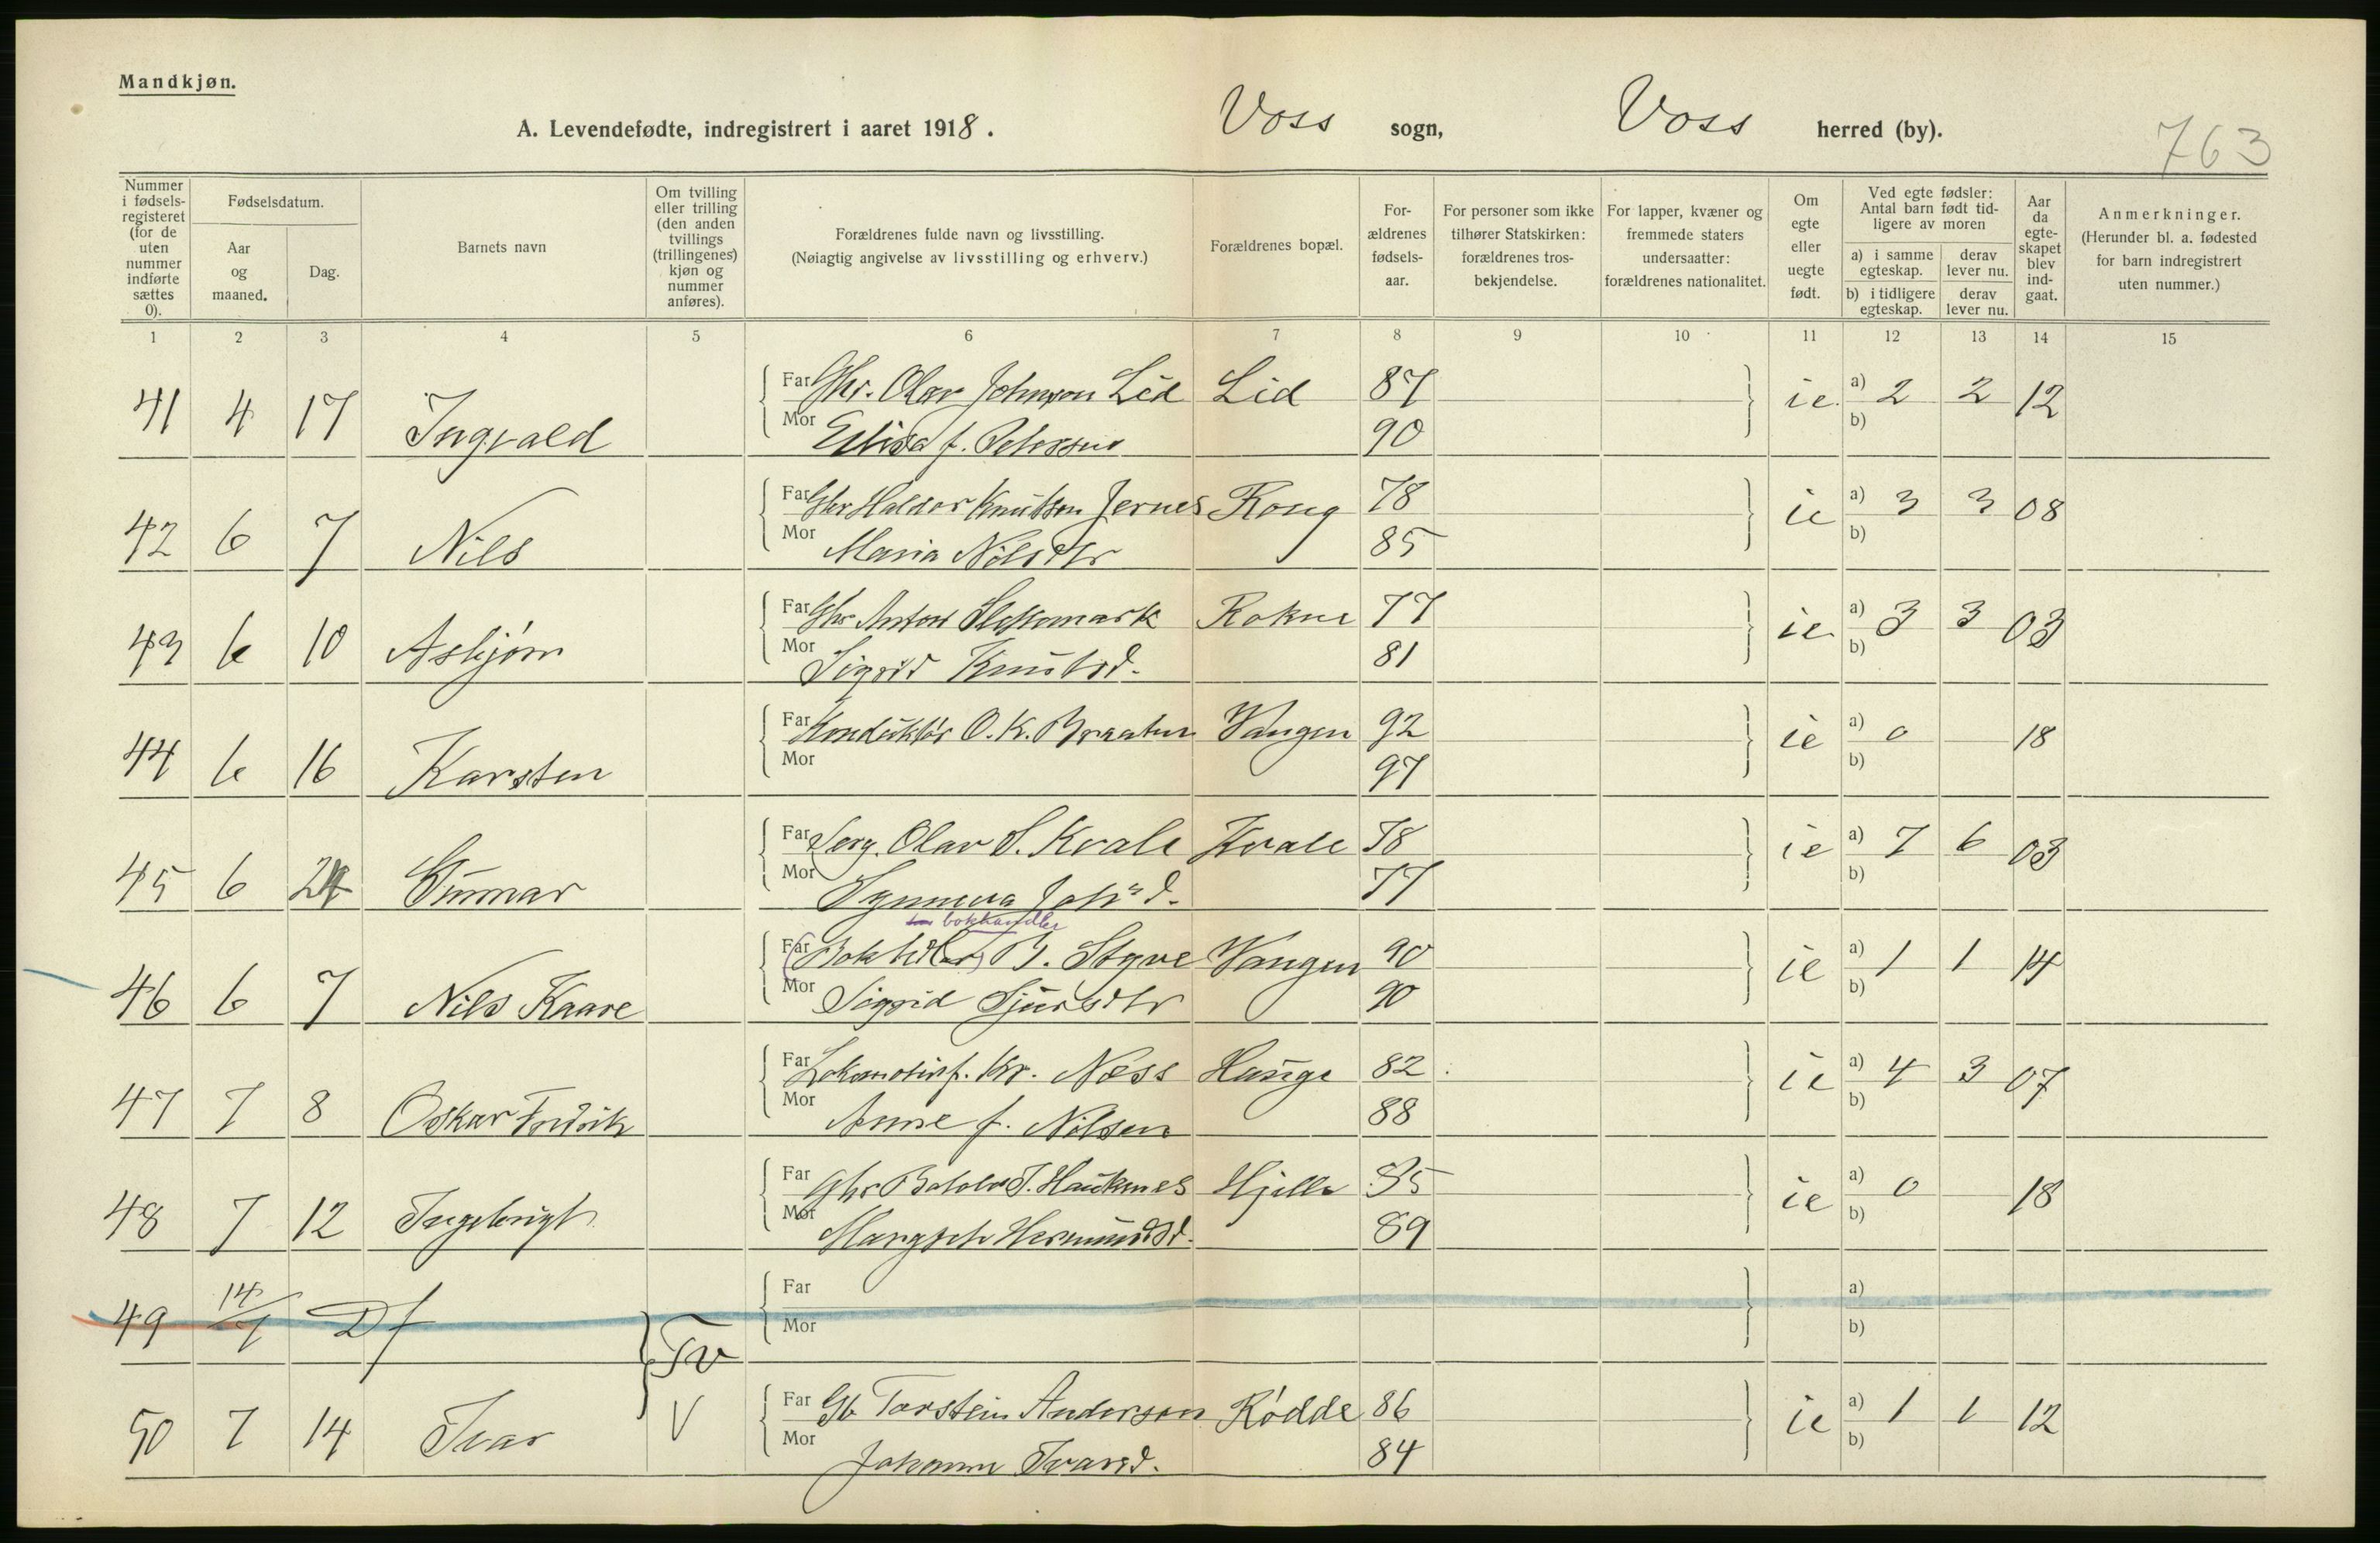 Mandkjøn.
A. Levendefødte, indregistrert i aaret 1918. Voss sogn, Voss herred (by).
763
Nummer i fødselsregisteret (for de uten nummer indførte sættes 0).
Fødselsdatum.
Aar og maaned.
Dag.
Barnets navn
Om tvilling eller trilling (den anden tvillings (trillingenes) kjøn og nummer anføres).
Forældrenes fulde navn og livsstilling.
(Nøiagtig angivelse av livsstilling og erhverv.)
Forældrenes bopæl.
Forældrenes fødselsaar.
For personer som ikke tilhører Statskirken: forældrenes trosbekjendelse.
For lapper, kvæner og fremmede staters undersaatter: forældrenes nationalitet.
Om egte eller uegte født.
Ved egte fødsler: Antal barn født tidligere av moren
a) i samme egteskap. derav lever nu.
b) i tidligere egteskap. derav lever nu.
Aar da egteskapet blev indgaat.
Anmerkninger.
(Herunder bl. a. fødested for barn indregistrert uten nummer.)
1 2 3 4 5 6 7 8 9 10 11 12 13 14 15
Far Gbr. Olav Johnson Lid Lid 87
41 4 17 Ingvald ie a) 2 2 12
Mor f. 90 b)
Far Gbr Haldor Knutson Jernes Rong 78
42 6 7 Nils ie a) 3 3 08
Mor Maria Nilsdtr 85 b)
Far Gbr Anton Rokne 77
43 6 10 Asbjørn ie a) 3 3 03
Mor Sigrid Knutsd. 81 b)
Far Konduktør O. K. Braaten Vangen 92
44 6 16 Karsten ie a) 0 18
Mor 97 b)
Far Serg. Olav S. Kvale Kvale 78
45 6 24 Gunnar ie a) 7 6 03
Mor Synneva Johsd. 77 b)
bokhandler
Far (Bokhdler) B. Styve Vangen 90
46 6 7 Nils Kaare ie a) 1 1 14
Mor Sigrid Sjursdtr 90 b)
Far Lokomotivf. Kr. Næss Hauge 82
47 7 8 Oskar Fredrik ie a) 4 3 07
Mor Anne f. Nilsen 88 b)
Far Gbr Hjelle 85
48 7 12 Ingebrigt ie a) 0 18
Mor 89 b)
Far a)
49 14/7 Df
Mor b)
Tv
Far Gb Torstein Anderson Rødde 86
50 7 14 Ivar V ie a) 1 1 12
Mor Johanna Ivarsd. 84 b)